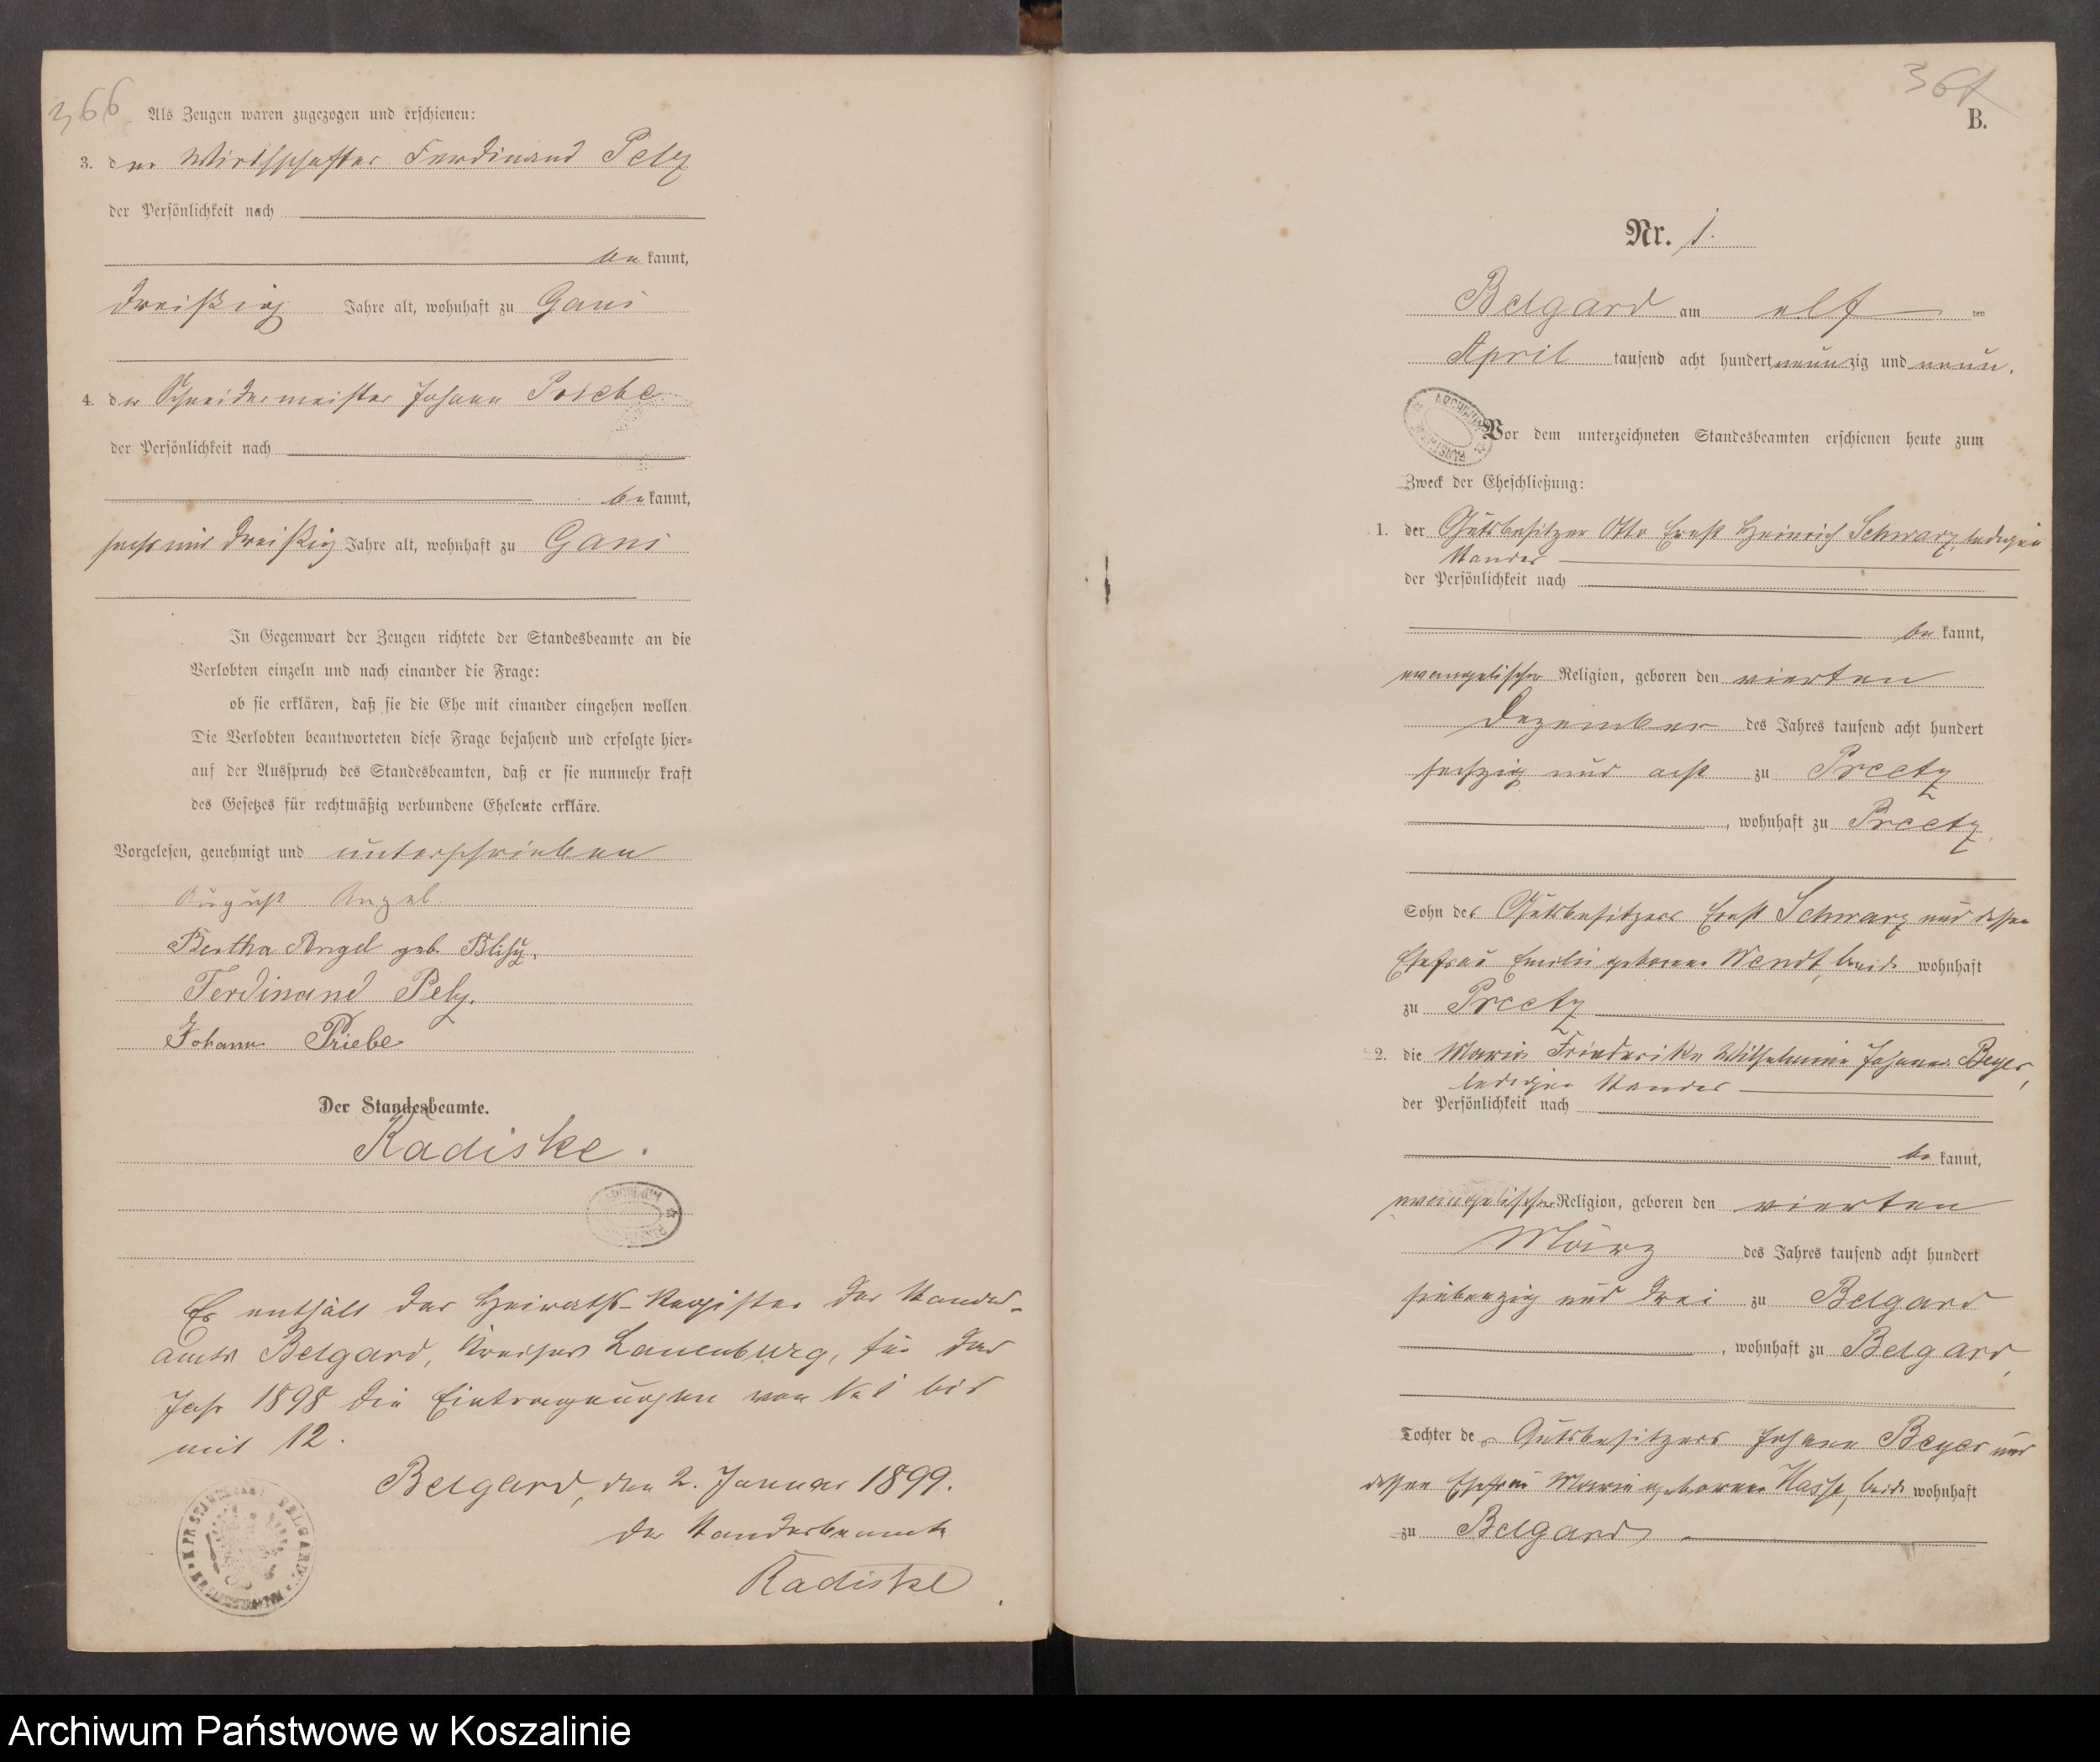 366
Als Zeugen waren zugezogen und erschienen:
3. der Wirthschafter Ferdinand Pelz
der Persönlichkeit nach
be kannt,
dreißig Jahre alt, wohnhaft zu Gans
4. der Schneidermeister Johann Priebe
der Persönlichkeit nach
be kannt,
sechs und dreißig Jahre alt, wohnhaft zu Gans
In Gegenwart der Zeugen richtete der Standesbeamte an die
Verlobten einzeln und nach einander die Frage:
ob sie erklären, daß sie die Ehe mit einander eingehen wollen.
Die Verlobten beantworteten diese Frage bejahend und erfolgte hier-
auf der Ausspruch des Standesbeamten, daß er sie nunmehr kraft
des Gesetzes für rechtmäßig verbundene Eheleute erkläre.
Vorgelesen, genehmigt und unterschrieben
August Angel.
Bertha Angel geb.
Ferdinand Pelz.
Johann Priebe
Der Standesbeamte.
Radiske.
Es enthält das Heiraths-Register des Standes-
amts Belgard, Kreises Lauenburg, für das
Jahr 1898 die Eintragungen von No 1 bis
mit 12.
Belgard, den 2. Januar 1899.
Der Standesbeamte
Radiske
367
B.
Nr. 1.
Belgard am elf ten
April tausend acht hundert neunzig und neun.
ARCHIWUM PAŃSTW
Vor dem unterzeichneten Standesbeamten erschienen heute zum
Zweck der Eheschließung:
1. der Gutsbesitzer Otto Ernst Heinrich Schwarz, ledigen
Standes
der Persönlichkeit nach
be kannt,
evangelischer Religion, geboren den vierten
Dezember des Jahres tausend acht hundert
sechzig und acht zu Preetz
, wohnhaft zu Preetz,
Sohn des Gutsbesitzers Ernst Schwarz und dessen
Ehefrau Emilie geborene Wendt, beide wohnhaft
zu Preetz
2. die Marie Friederike Wilhelmine Johanna Beyer,
ledigen Standes
der Persönlichkeit nach
be kannt,
evangelischer Religion, geboren den vierten
März des Jahres tausend acht hundert
siebenzig und drei zu Belgard
, wohnhaft zu Belgard,
Tochter des Gutsbesitzers Johann Beyer und
dessen Ehefrau Marie geborene Hasse, beide wohnhaft
zu Belgard
Archiwum Państwowe w Koszalinie